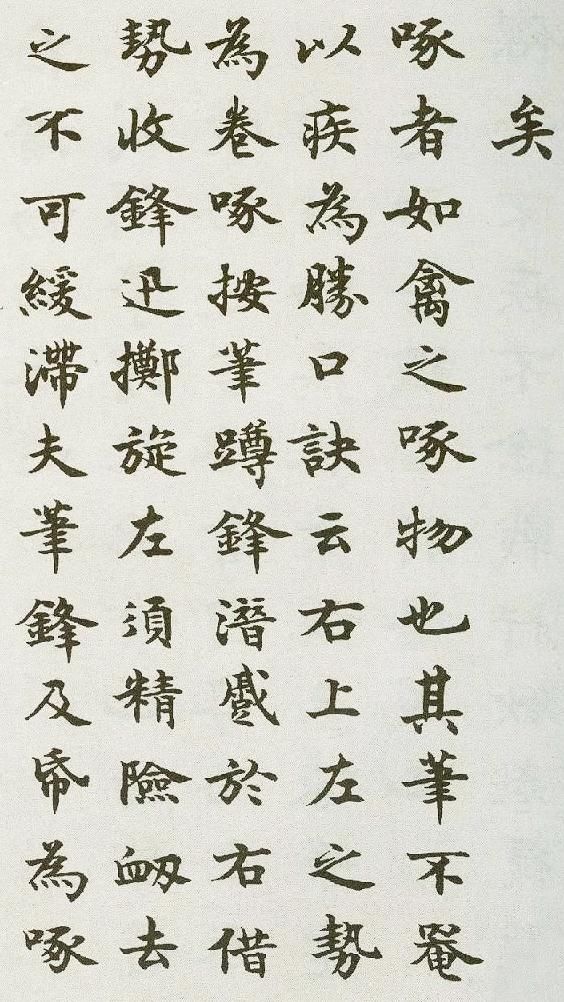 矣
啄者如禽之啄物也其筆不罨
以疾為勝口訣云右上左之勢
為卷啄按筆蹲鋒潛蹙於右借
勢收鋒迅擲旋左須精險衂去
之不可緩滯夫筆鋒及帋為啄